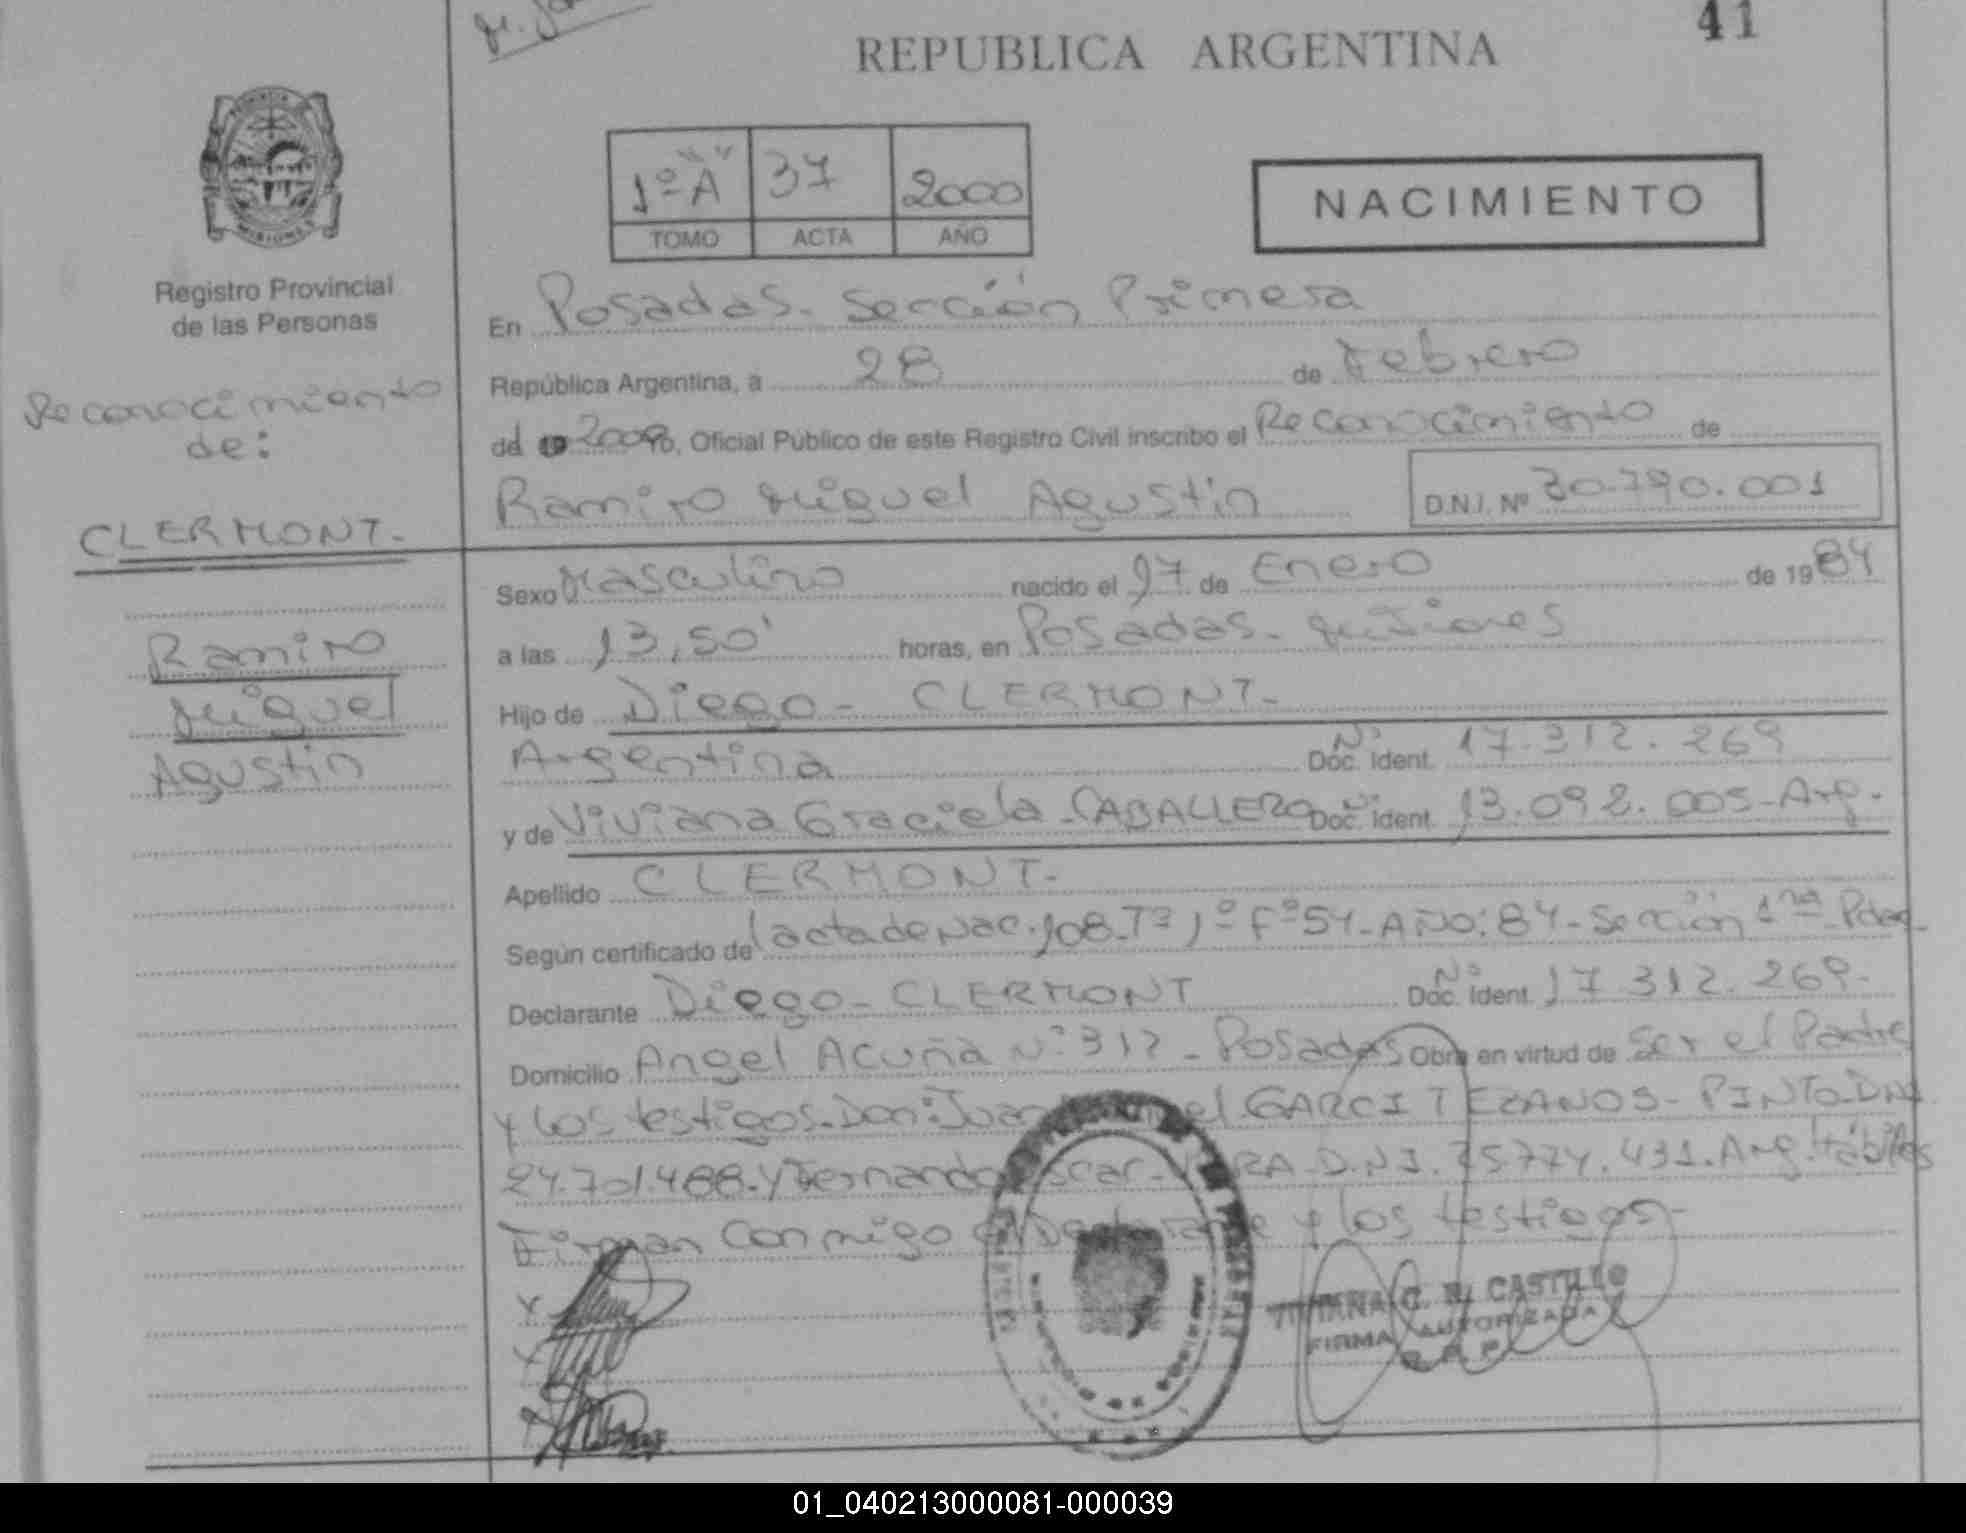 41
REPUBLICA ARGENTINA
MISIONES
1º "A" 37 2000
TOMO ACTA AÑO
NACIMIENTO
Registro Provincial
de las Personas
Reconocimiento
de:
CLERMONT.
Ramiro
Miguel
Agustin
En Posadas. Sección Primera
República Argentina, a 28 de Febrero
del 2000, Oficial Público de este Registro Civil inscribo el Reconocimiento de
Ramiro Miguel Agustin D.N.I. Nº 30.790.001
Sexo Masculino nacido el 17 de Enero de 1984
a las 13,50' horas, en Posadas. Misiones
Hijo de Diego - CLERMONT.
Argentina Nº Doc. Ident. 17.312.269
y de Viviana Graciela CABALLERO Nº Doc. Ident. 13.092.005-Arg.
Apellido CLERMONT.
Según certificado de (acta de Nac. 108-Tº 1º Fº54-AÑO: 84-Sección 1ra Pdas
Declarante Diego - CLERMONT Nº Doc. Ident. 17.312.269.
Domicilio Angel Acuña Nº 312 - Posadas Obra en virtud de Ser el Padre
y los testigos. Don: Juan GARCI TEZANOS - PINTO. DNI
24.701.488. y Fernando Oscar D.N.I. 25.774.431. Arg. Hábiles
Firman conmigo el Declarante y los testigos-
VIVIANA C. R. CASTILLO
FIRMA AUTORIZADA
01_040213000081-000039